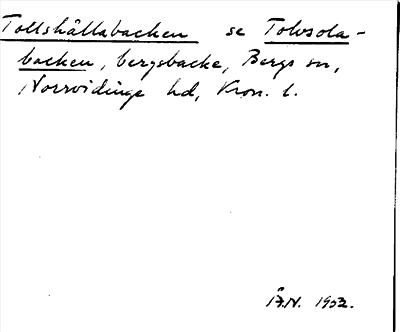 Tollshällabacken se Tolvsola-
backen, bergsbacke, Bergs sn,
Norrvidinge hd, Kron. l.
Å.N. 1952.